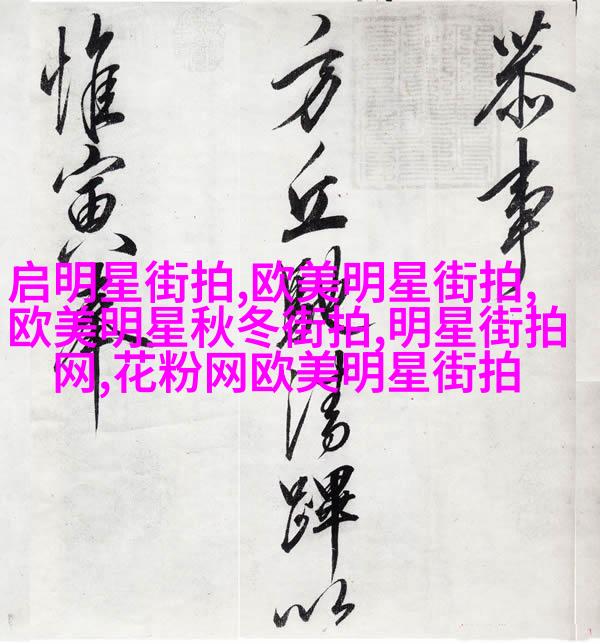 恭事
方丘清蹕以
惟寅
启明星街拍,欧美明星街拍,
欧美明星秋冬街拍,明星街拍
网,花粉网欧美明星街拍